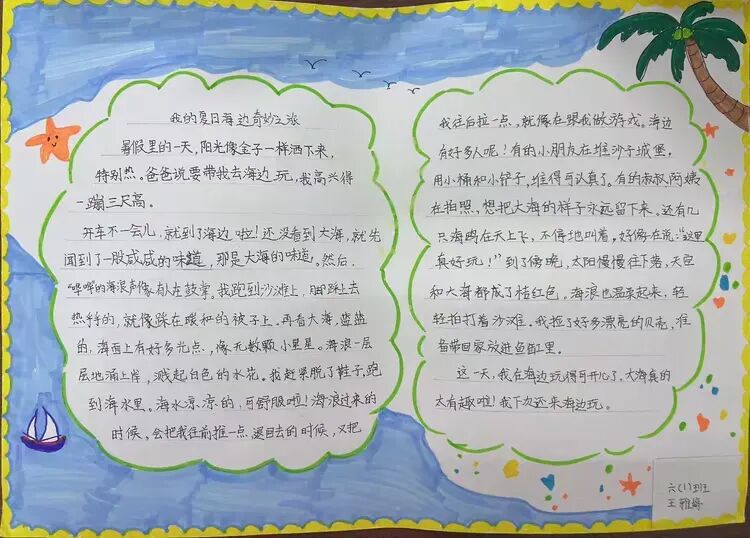 我的夏日海边奇妙之旅
暑假里的一天，阳光像金子一样洒下来，
特别热。爸爸说要带我去海边玩，我高兴得
一蹦三尺高。
开车不一会儿，就到了海边啦！还没看到大海，就先
闻到了一股咸咸的味道，那是大海的味道。然后，
“哗哗的海浪声像有人在鼓掌。我跑到沙滩上，脚踩上去
热特的，就像踩在暖和的被子上。再看大海，蓝蓝
的，海面上有好多光点，像无数颗小星星。海浪一层
层地涌上岸，溅起白色的水花。我赶紧脱了鞋子，跑
到海水里。海水凉凉的，可舒服啦！海浪过来的
时候，会把我往前推一点，退回去的时候，又把
我往后拉一点，就像在跟我做游戏。海边
有好多人呢！有的小朋友在堆沙子城堡，
用小桶和小铲子，堆得可认真了。有的叔叔阿姨
在拍照，想把大海的样子永远留下来。还有几
只海鸥在天上飞，不停地叫着，好像在说：“这里
真好玩！”到了傍晚，太阳慢慢往下落，天空
和大海都成了桔红色，海浪也温柔起来，轻
轻拍打着沙滩。我捡了好多漂亮的贝壳，准
备带回家放进鱼缸里。
这一天，我在海边玩得可开心了，大海真的
太有趣啦！我下次还来海边玩。
六(1)班
王雅婷